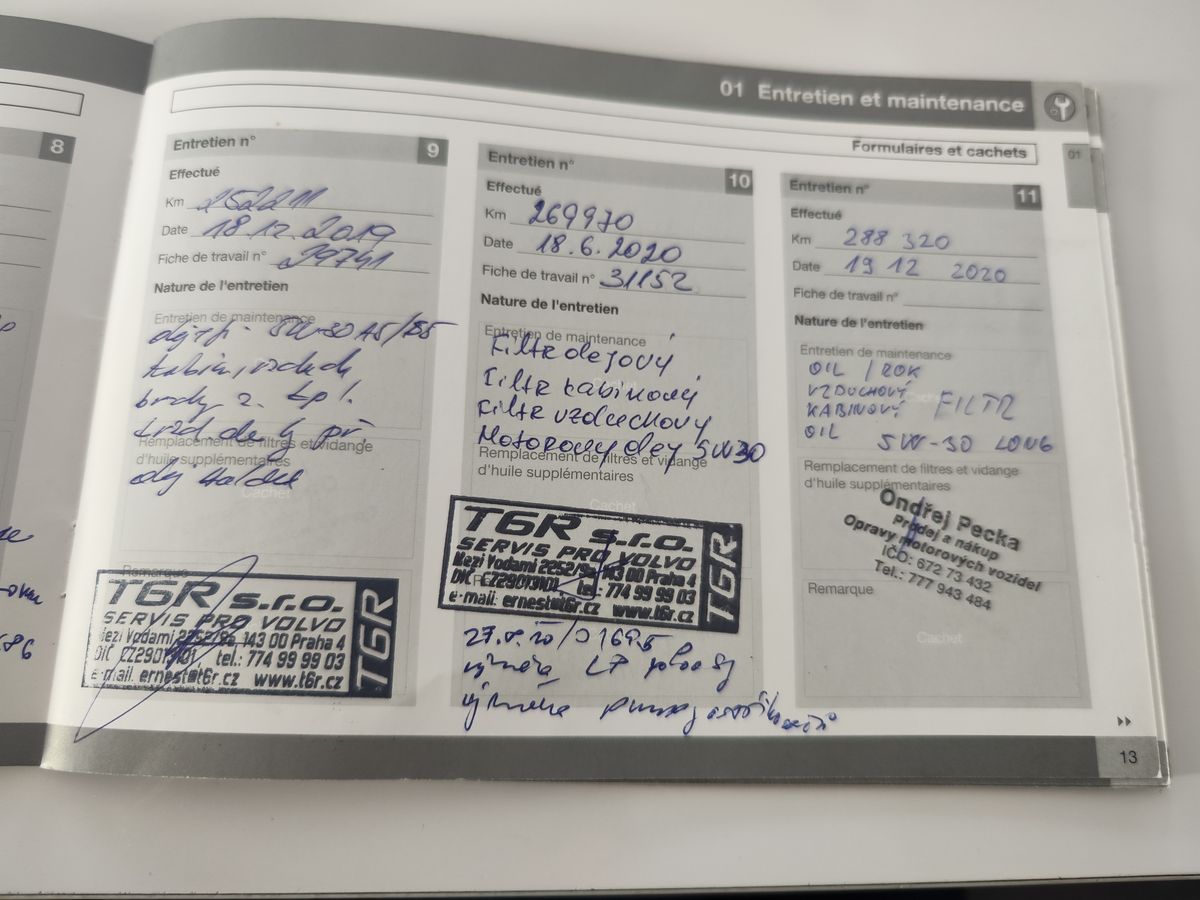 01 Entretien et maintenance
Formulaires et cachets
01
8
Entretien n° 9
Effectué
Km 252211
Date 18.12.2019
Fiche de travail n° 29741
Nature de l'entretien
Entretien de maintenance
5W-30 A5/B5
Cachet
Remplacement de filtres et vidange
d'huile supplémentaires
Cachet
Remarque
T6R s.r.o.
SERVIS PRO VOLVO
Mezi Vodami 2252/9a, 143 00 Praha 4
DIČ CZ29013101, tel.: 774 99 99 03
e-mail: ernest@t6r.cz www.t6r.cz
T6R
Entretien n° 10
Effectué
Km 269970
Date 18.6.2020
Fiche de travail n° 31152
Nature de l'entretien
Entretien de maintenance
Filtr olejový
Filtr kabinový
Filtr vzduchový
Motorový olej 5W30
Remplacement de filtres et vidange
d'huile supplémentaires
Cachet
T6R s.r.o.
SERVIS PRO VOLVO
Mezi Vodami 2252/9a, 143 00 Praha 4
DIČ CZ29013101, tel.: 774 99 99 03
e-mail: ernest@t6r.cz www.t6r.cz
T6R
výměna
výměna
Entretien n° 11
Effectué
Km 288 320
Date 19 12 2020
Fiche de travail n°
Nature de l'entretien
Entretien de maintenance
OIL / ROK
VZDUCHOVÝ
KABINOVÝ FILTR
OIL 5W-30 LONG
Remplacement de filtres et vidange
d'huile supplémentaires
Ondřej Pecka
Prodej a nákup
Opravy motorových vozidel
IČO: 672 73 432
Tel.: 777 943 484
Remarque
Cachet
13